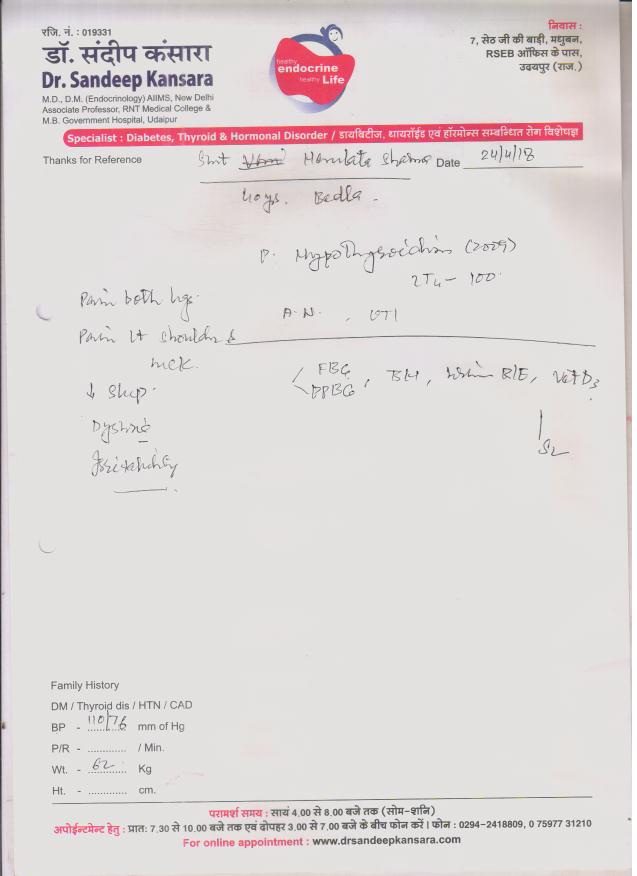 रजि. नं. : 019331
डॉ. संदीप कंसारा
Dr. Sandeep Kansara
M.D., D.M. (Endocrinology) AIIMS, New Delhi
Associate Professor, RNT Medical College &
M.B. Government Hospital, Udaipur
healthy
endocrine
healthy Life
निवास :
7, सेठ जी की बाड़ी, मधुबन,
RSEB ऑफिस के पास,
उदयपुर (राज.)
Specialist : Diabetes, Thyroid & Hormonal Disorder / डायबिटीज, थायरॉईड एवं हॉरमोन्स सम्बन्धित रोग विशेषज्ञ
Thanks for Reference Smt Sharma Date 24/4/18
40ys. Bedla.
Hypothyroidism (2009)
100
Pain both legs.
A.N. , UTI
Pain Lt shoulder &
neck.
FBG
PPBG
, Vit D3
↓ Sleep.
Irritability
Family History
DM / Thyroid dis / HTN / CAD
BP - 110/76 mm of Hg
P/R - ............. / Min.
Wt. - 62 Kg
Ht. - ............. cm.
परामर्श समय : सायं 4.00 से 8.00 बजे तक (सोम-शनि)
अपोईन्टमेन्ट हेतु : प्रातः 7.30 से 10.00 बजे तक एवं दोपहर 3.00 से 7.00 बजे के बीच फोन करें। फोन : 0294-2418809, 0 75977 31210
For online appointment : www.drsandeepkansara.com